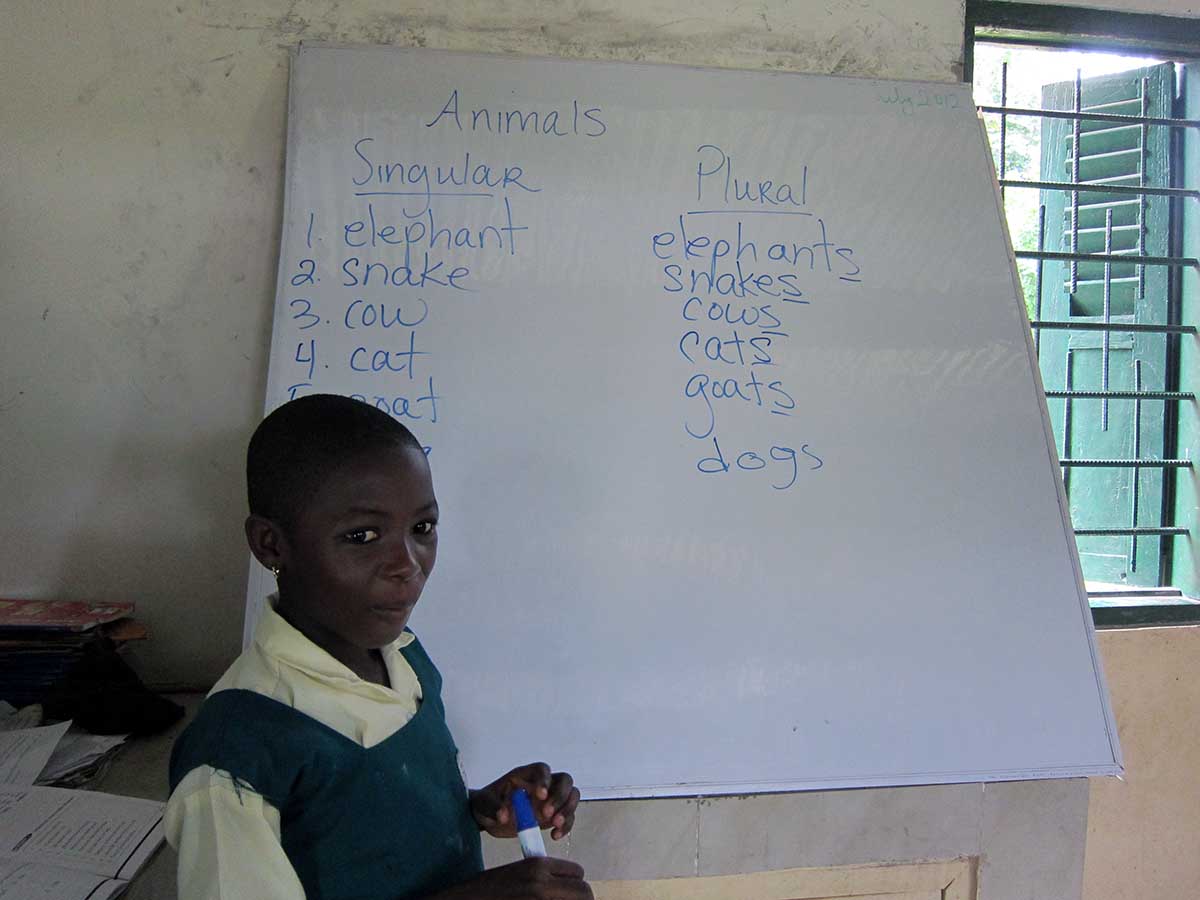 July 2012
Animals
Singular Plural
1. elephant elephants
2. snake snakes
3. cow cows
4. cat cats
goat goats
dogs